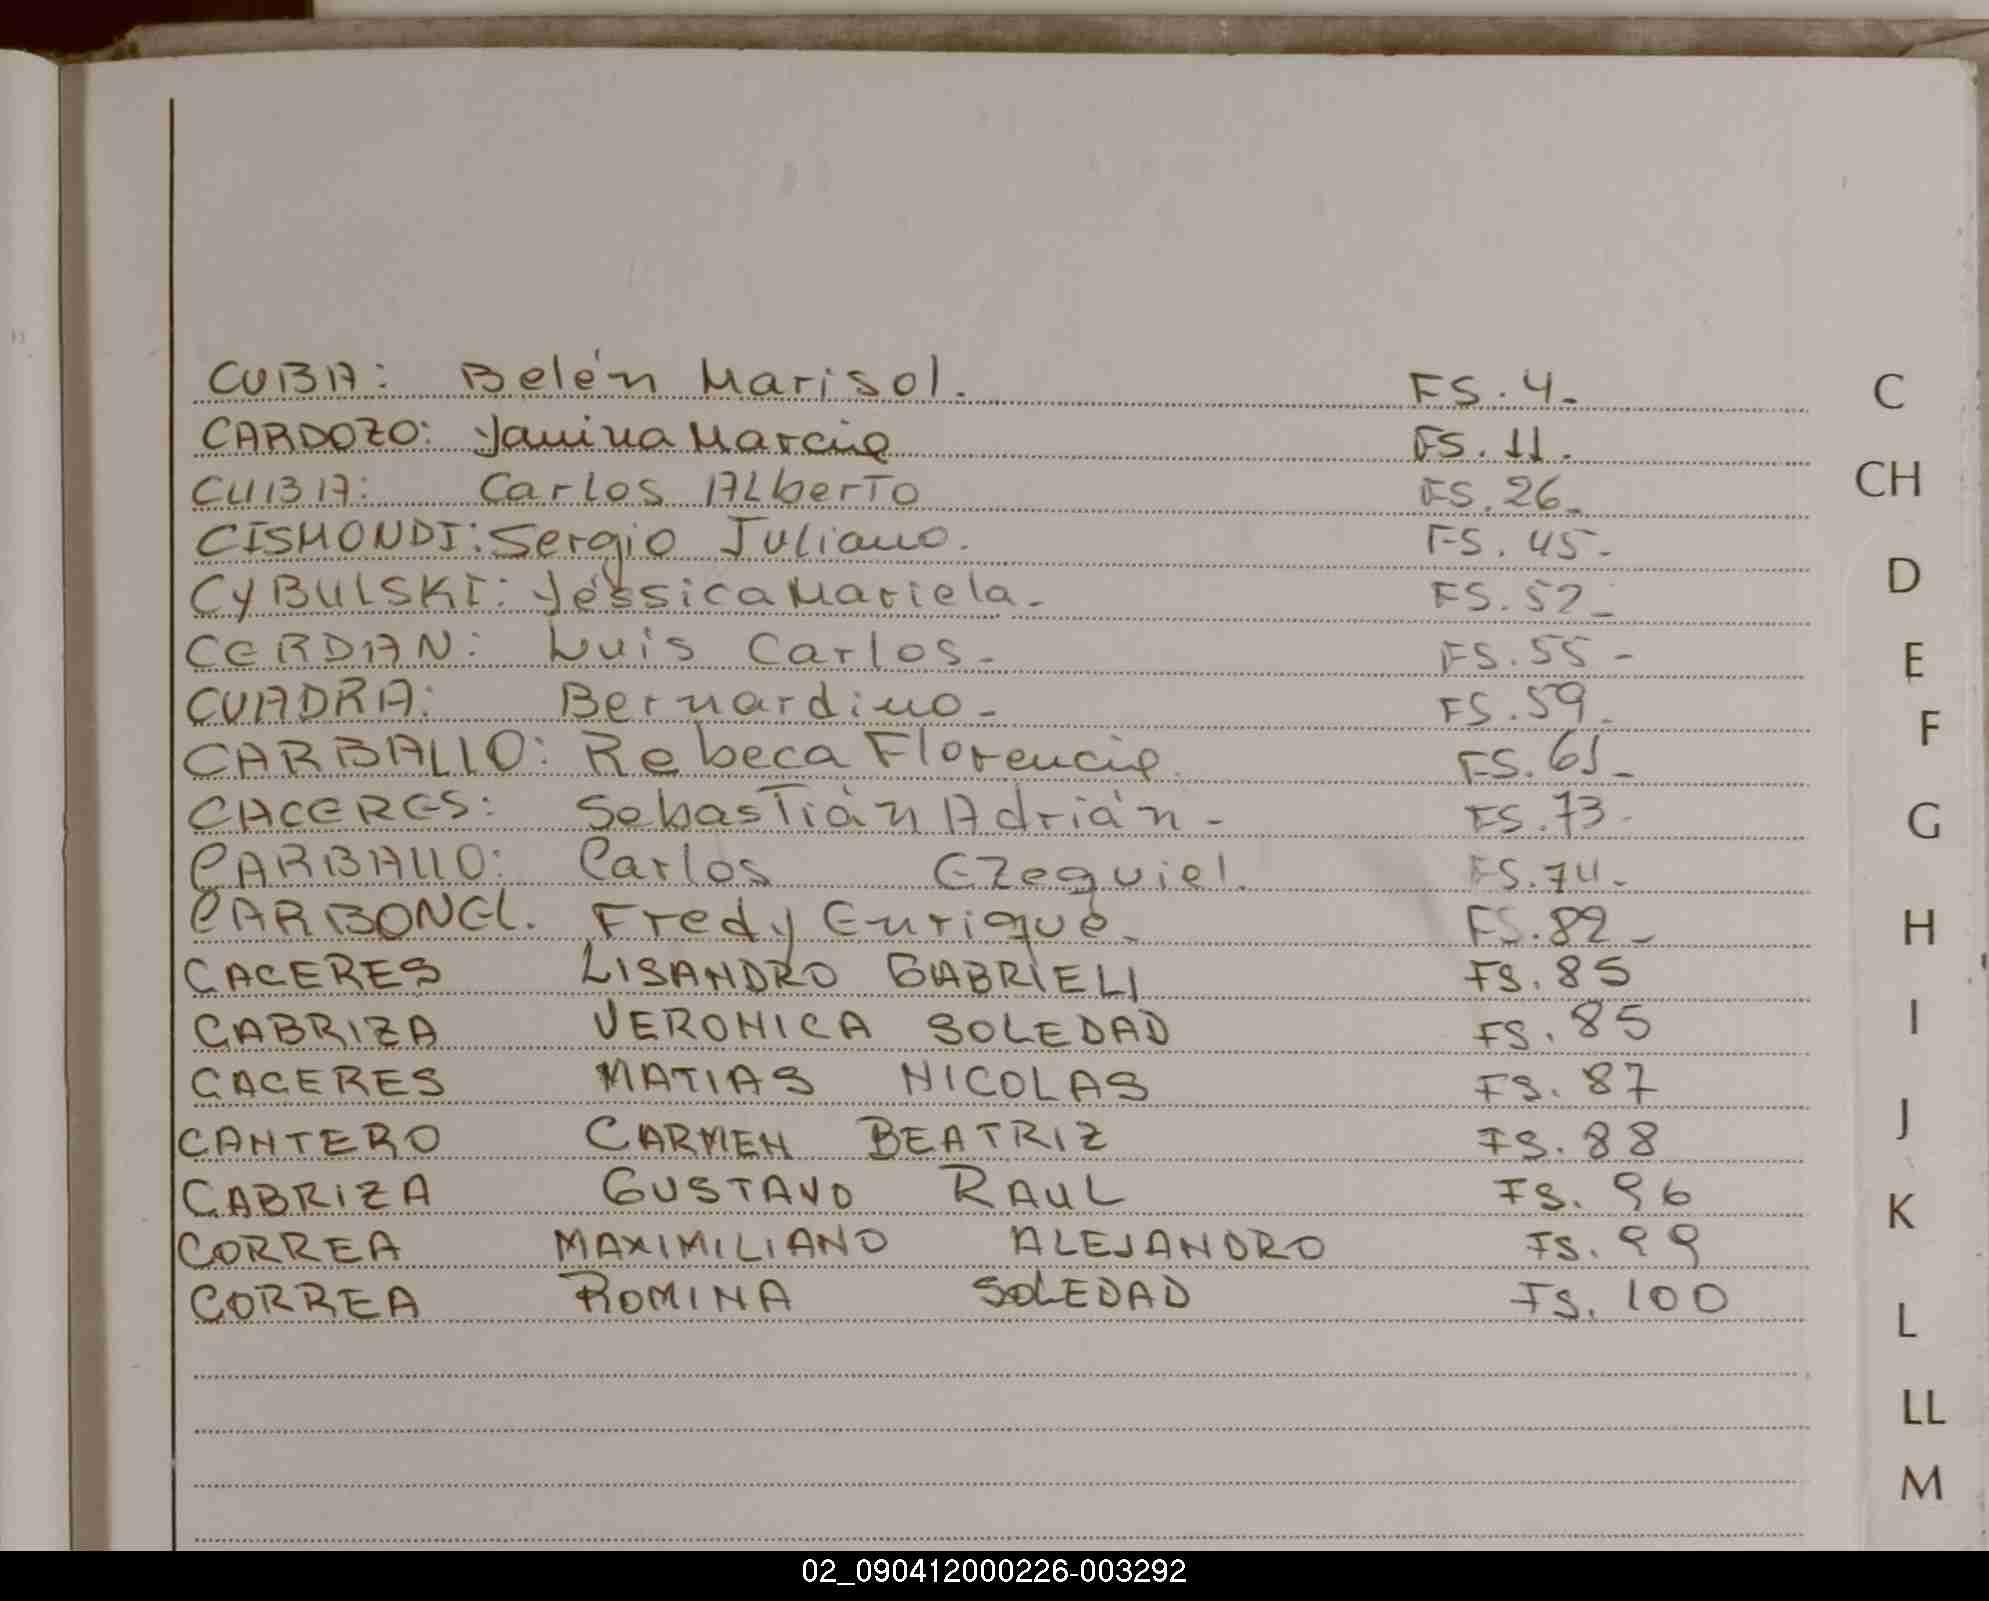 CUBA: Belén Marisol. FS. 4.-
CARDOZO: Yanina Marcia FS. 11.
CUBA: Carlos ALberTo FS. 26.-
CISMONDI: Sergio Juliano. FS. 45.-
CYBULSKI: Jéssica Mariela.- FS. 52.-
CERDAN: Luis Carlos.- FS. 55.-
CUADRA: Bernardino.- FS. 59.
CARBALLO: Rebeca Florencia. FS. 61.-
CACERES: SebasTián Adrián.- FS. 73.-
CARBALLO: Carlos Ezequiel. FS. 74.-
CARBONEL. Fredy Enrique.- FS. 82.-
CACERES LISANDRO GABRIEL FS. 85
CABRIZA VERONICA SOLEDAD FS. 85
CACERES MATIAS NICOLAS FS. 87
CANTERO CARMEN BEATRIZ FS. 88
CABRIZA GUSTAVO RAUL FS. 96
CORREA MAXIMILIANO ALEJANDRO FS. 99
CORREA ROMINA SOLEDAD FS. 100
C
CH
D
E
F
G
H
I
J
K
L
LL
M
02_090412000226-003292